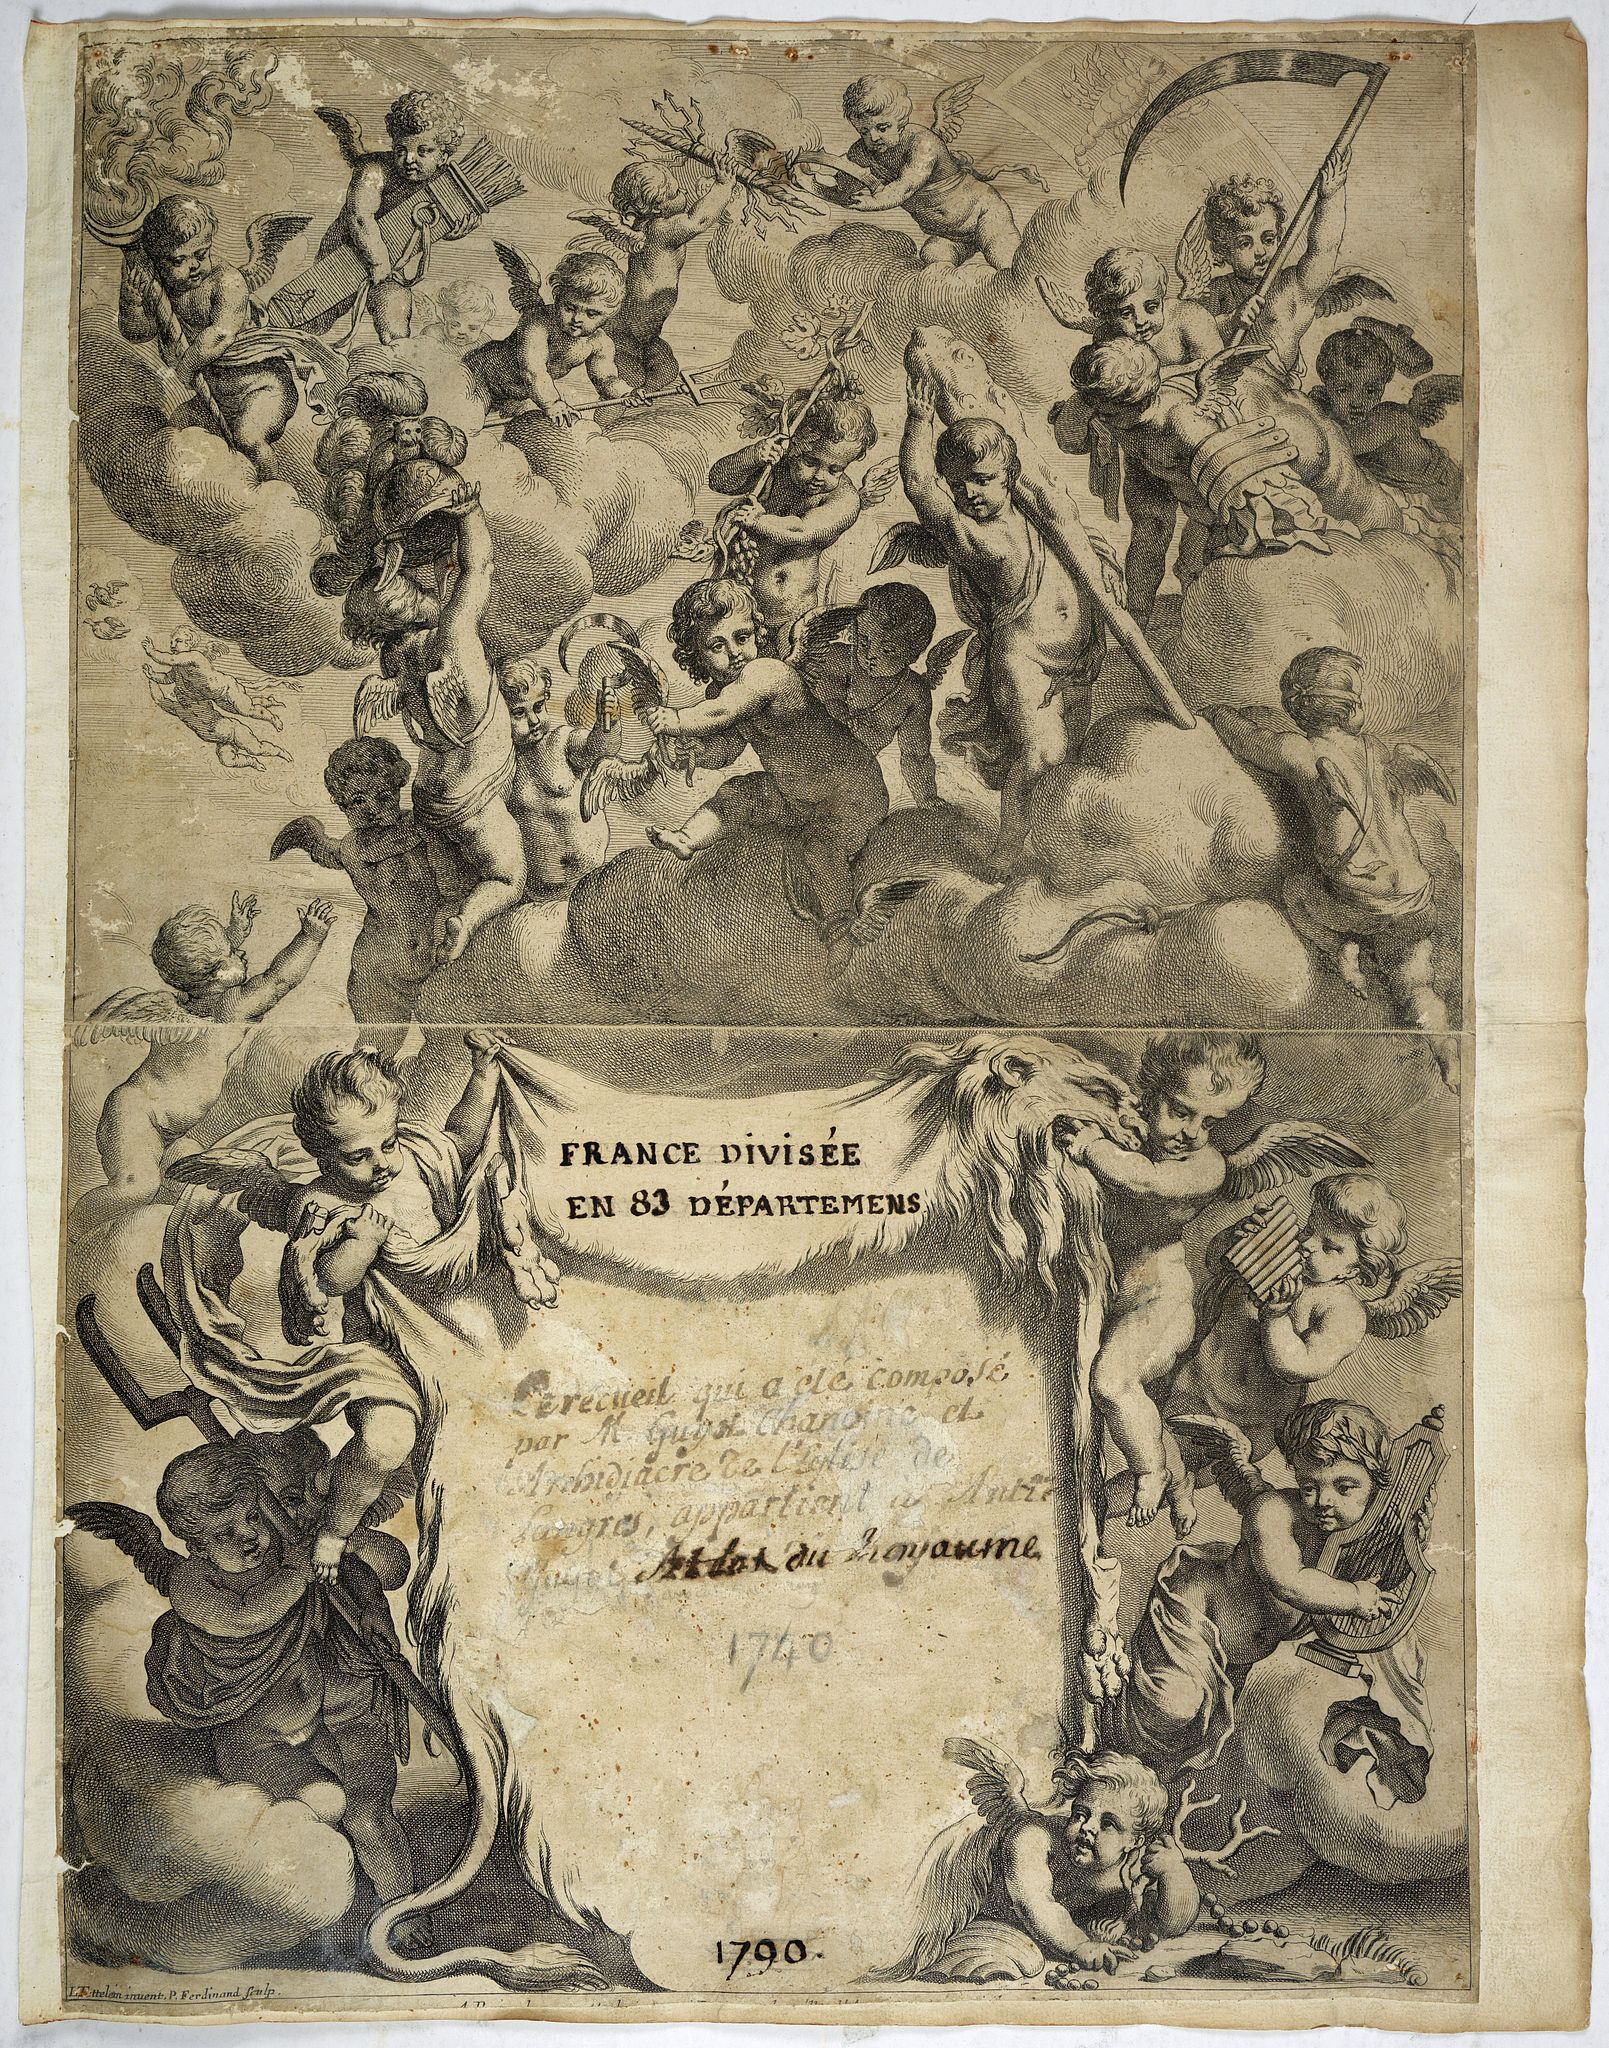 FRANCE DIVISÉE
EN 83 DÉPARTEMENS
Ce recueil qui a eté composé
par Mr Guyot Chanoine et
Archidiacre de l'Eglise de
Langres, appartient a
Atlas du Royaume
1740
1790.
L. Ettelin invent. P. Ferdinand sculp.